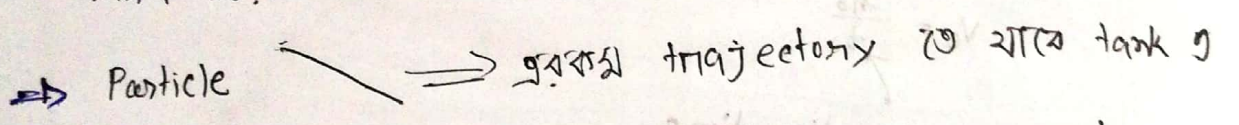 ⇒ Particle ⇒ এরকম trajectory তে যাবে tank এ